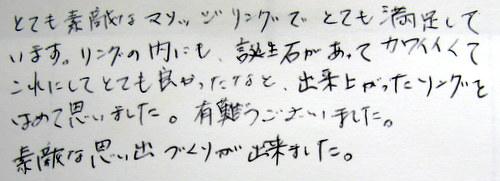 とても素敵なマリッジリングでとても満足して
います。リングの内にも、誕生石があってカワイくて
これにしてとても良かったなと、出来上がったリングを
はめて思いました。有難うございました。
素敵な思い出づくりが出来ました。